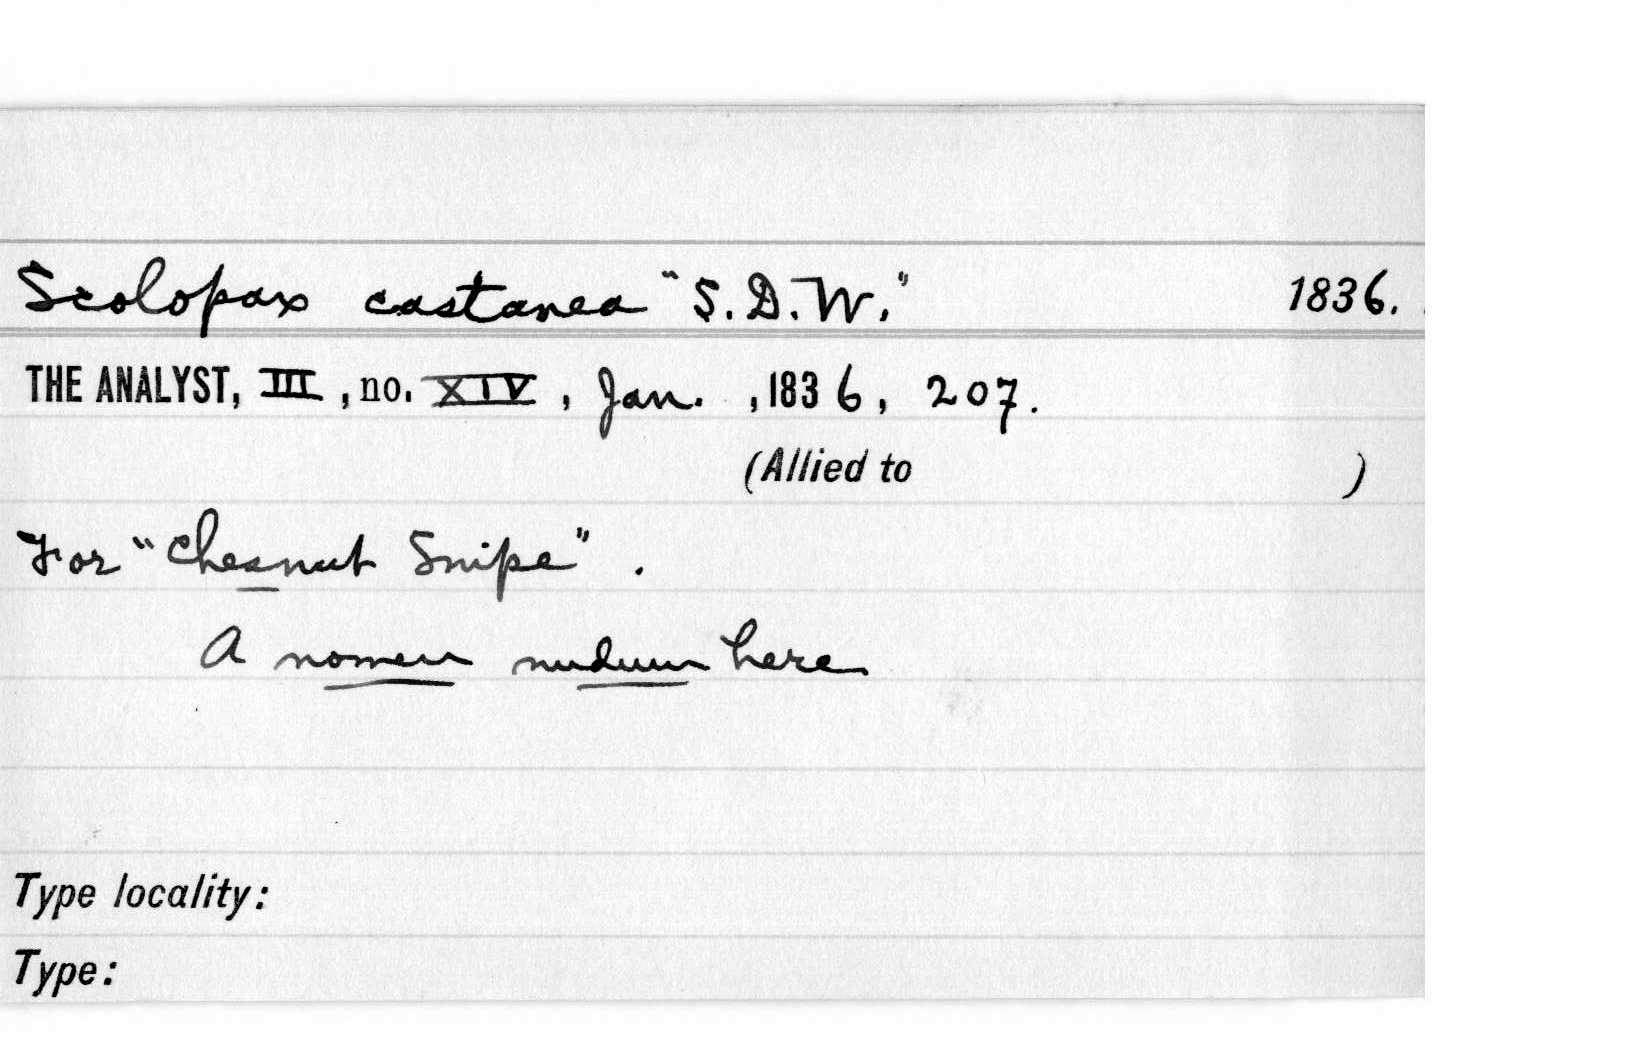 Scolopax castanea "S.D.W." 1836.
THE ANALYST, III, no. XIV, Jan. ,1836, 207.
(Allied to )
For "Chesnut Snipe".
A nomen nudum here
Type locality:
Type: